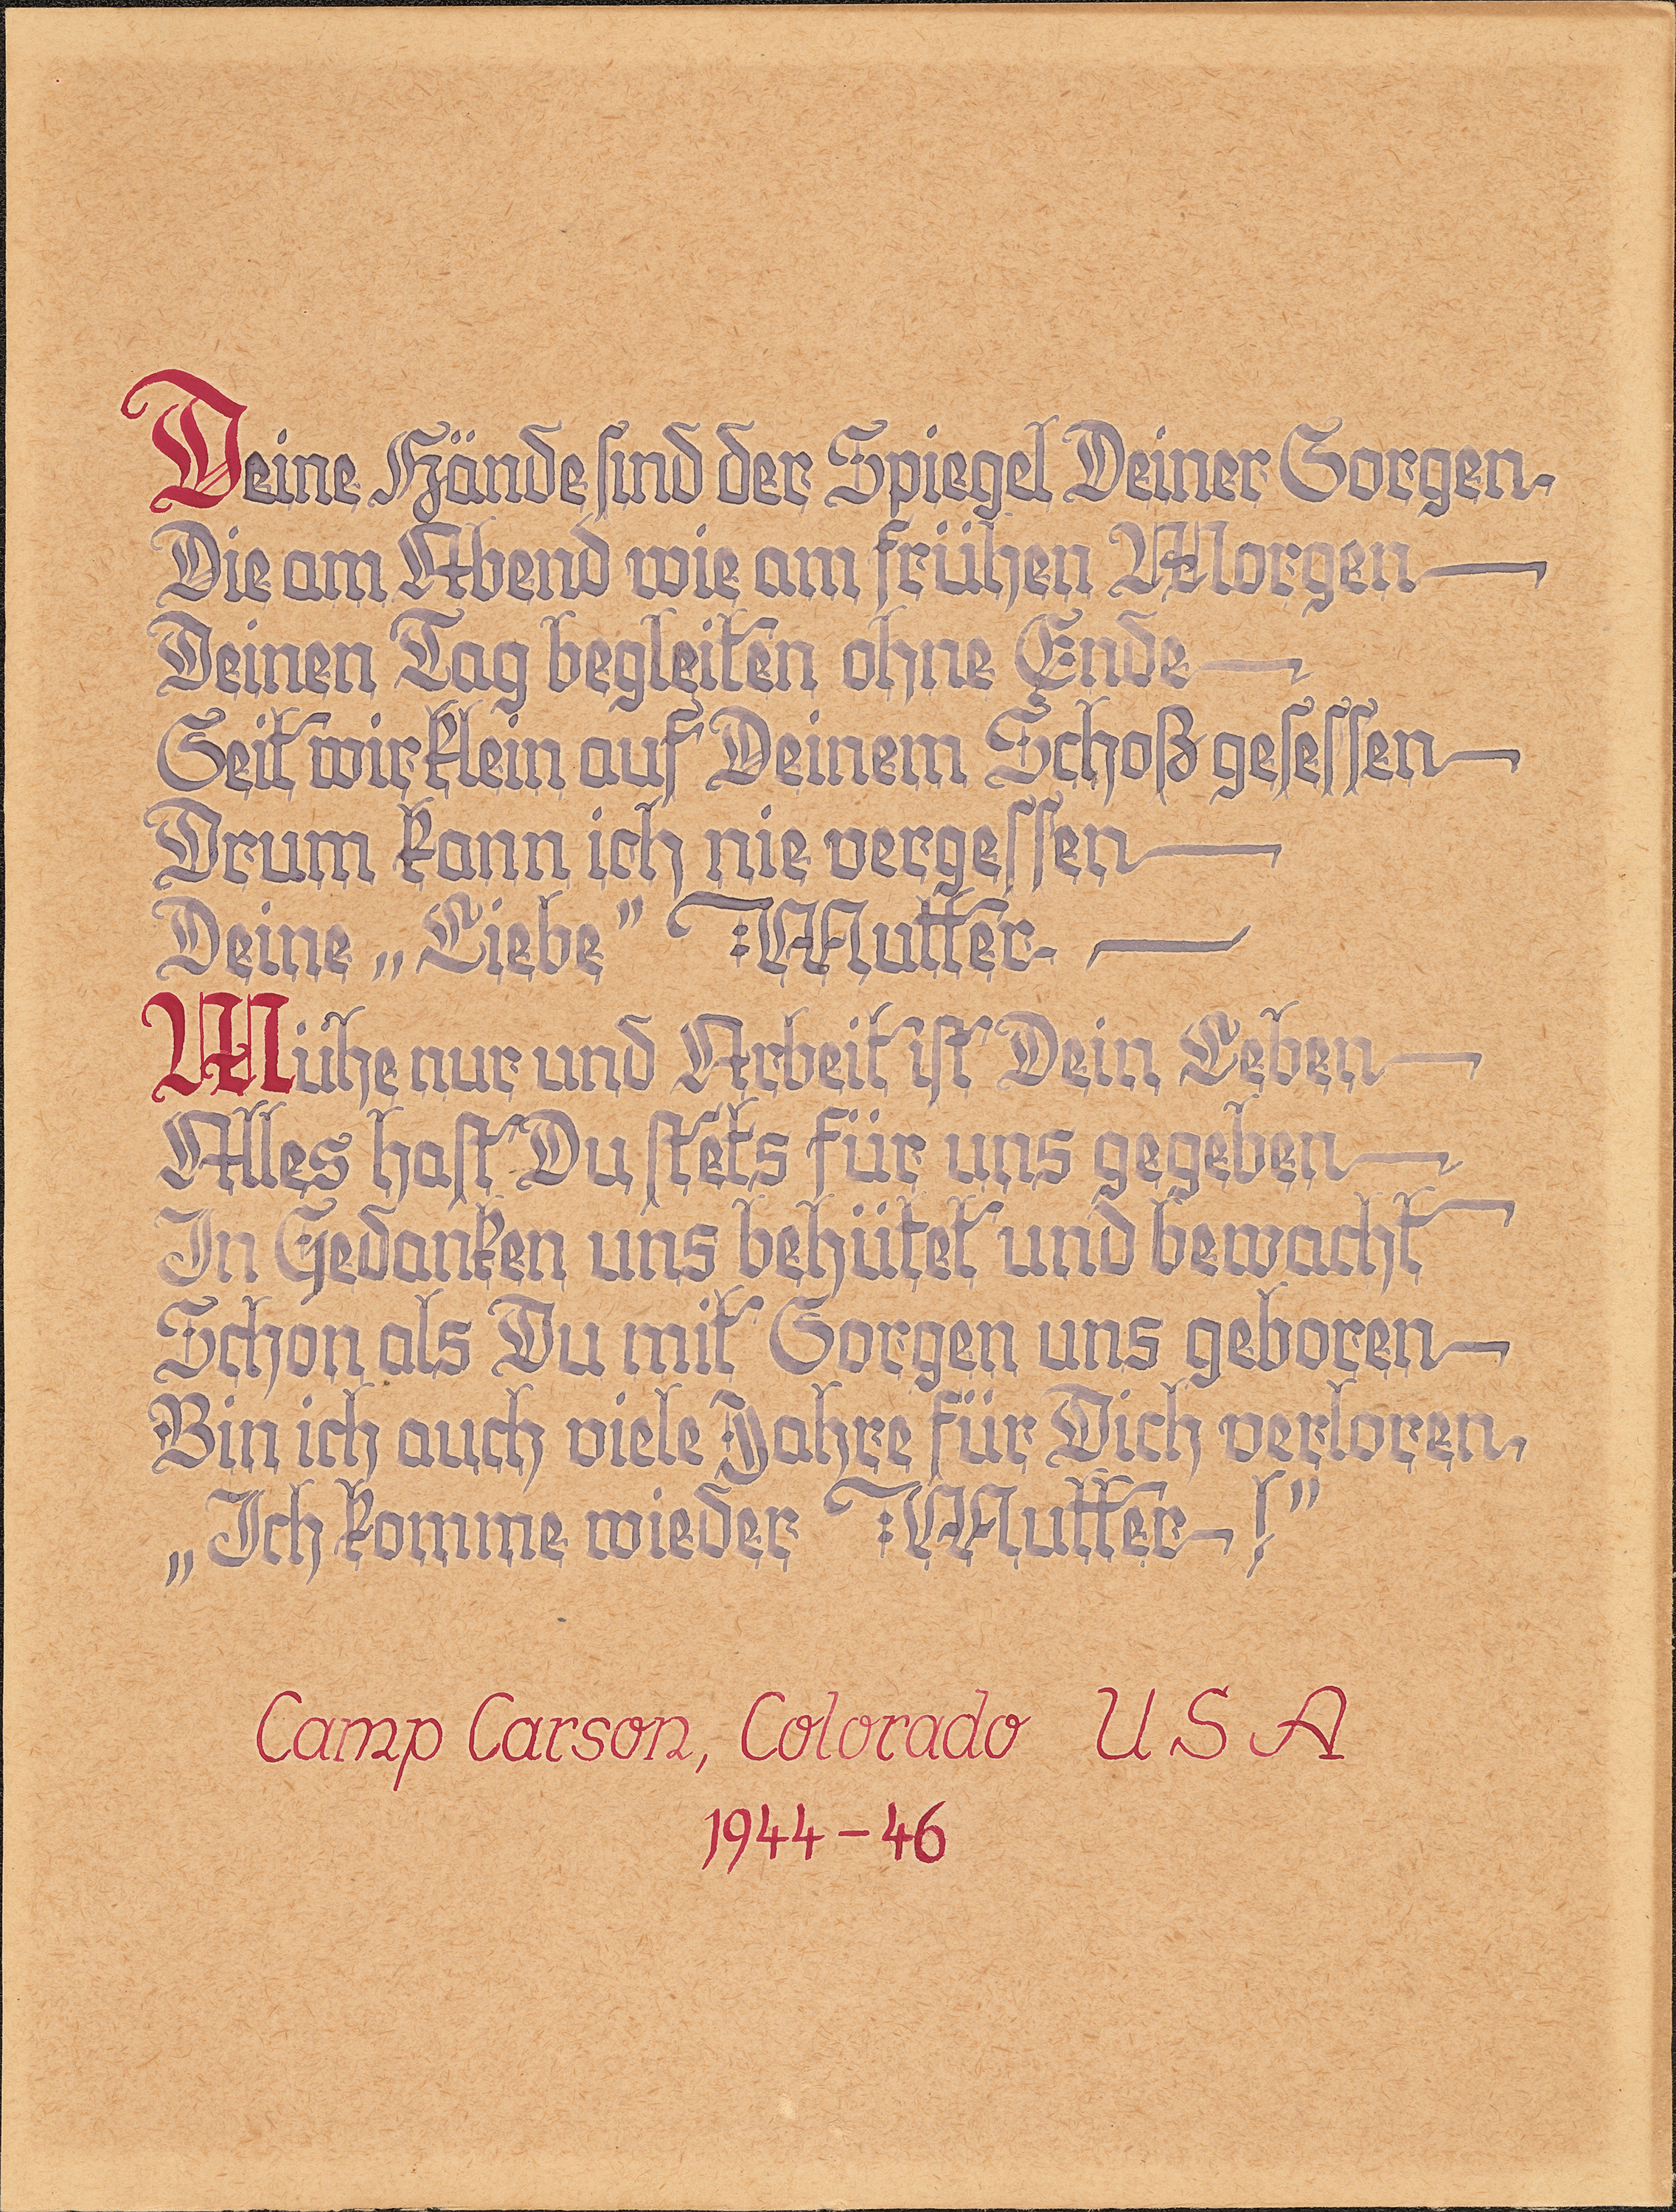 Deine Hände sind der Spiegel Deiner Sorgen.
Die am Abend wie am frühen Morgen —
Deinen Tag begleiten ohne Ende —
Seit wir klein auf Deinem Schoß gesessen —
Drum kann ich nie vergessen —
Deine „Liebe” Mutter. —
Mühe nur und Arbeit ist Dein Leben —
Alles hast Du stets für uns gegeben —
In Gedanken uns behütet und bewacht —
Schon als Du mit Sorgen uns geboren —
Bin ich auch viele Jahre für Dich verloren,
„Ich komme wieder Mutter — !”
Camp Carson, Colorado USA
1944 – 46